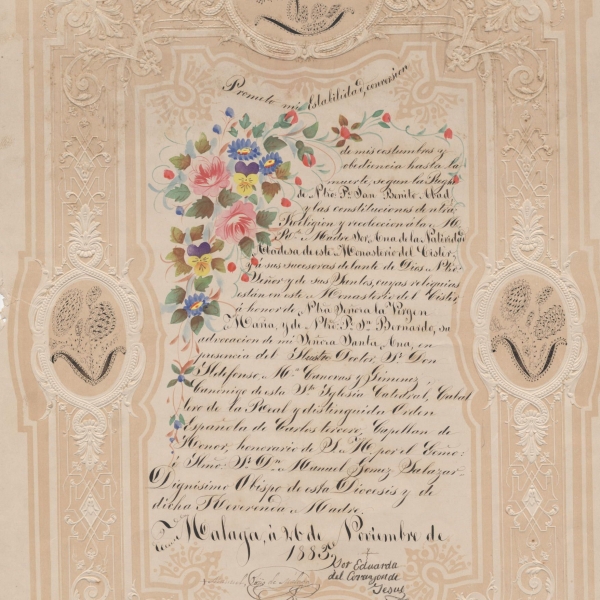 Prometo mi Estabilidad, conversion
de mis costumbres y
obediencia hasta la
muerte, segun la Regla
de Ntro. P. San Benito Abad
y las constituciones de ntra.
Religion y recoleccion á la M.
Rda. Madre Sor Ana de la Natividad
Abadesa de este Monasterio del Cister,
y á sus sucesoras delante de Dios Ntro.
Señor y de sus Santos, cuyas reliquias
están en este Monasterio del Cister
á honor de Ntra. Señora la Virgen
Maria, y de Ntro. P. Sn. Bernardo, su
advocacion de mi Señora Santa Ana, en
presencia del Ilustre Doctor, Sr. Don
Ildefonso Ma. Canovas y Gimenez,
Canónigo de esta Sta. Iglesia Catedral, Caballero
de la Real y distinguida Orden
Española de Carlos tercero, Capellan de
Honor, honorario de S. M. por el Exmo.
é Iltmo. Sr. Dn. Manuel Gomez Salazar
Dignisimo Obispo de esta Diocesis y de
dicha Reverenda Madre.
Malaga, á 26 de Noviembre de
1883.
Sor Eduarda
del Corazon de
Jesus